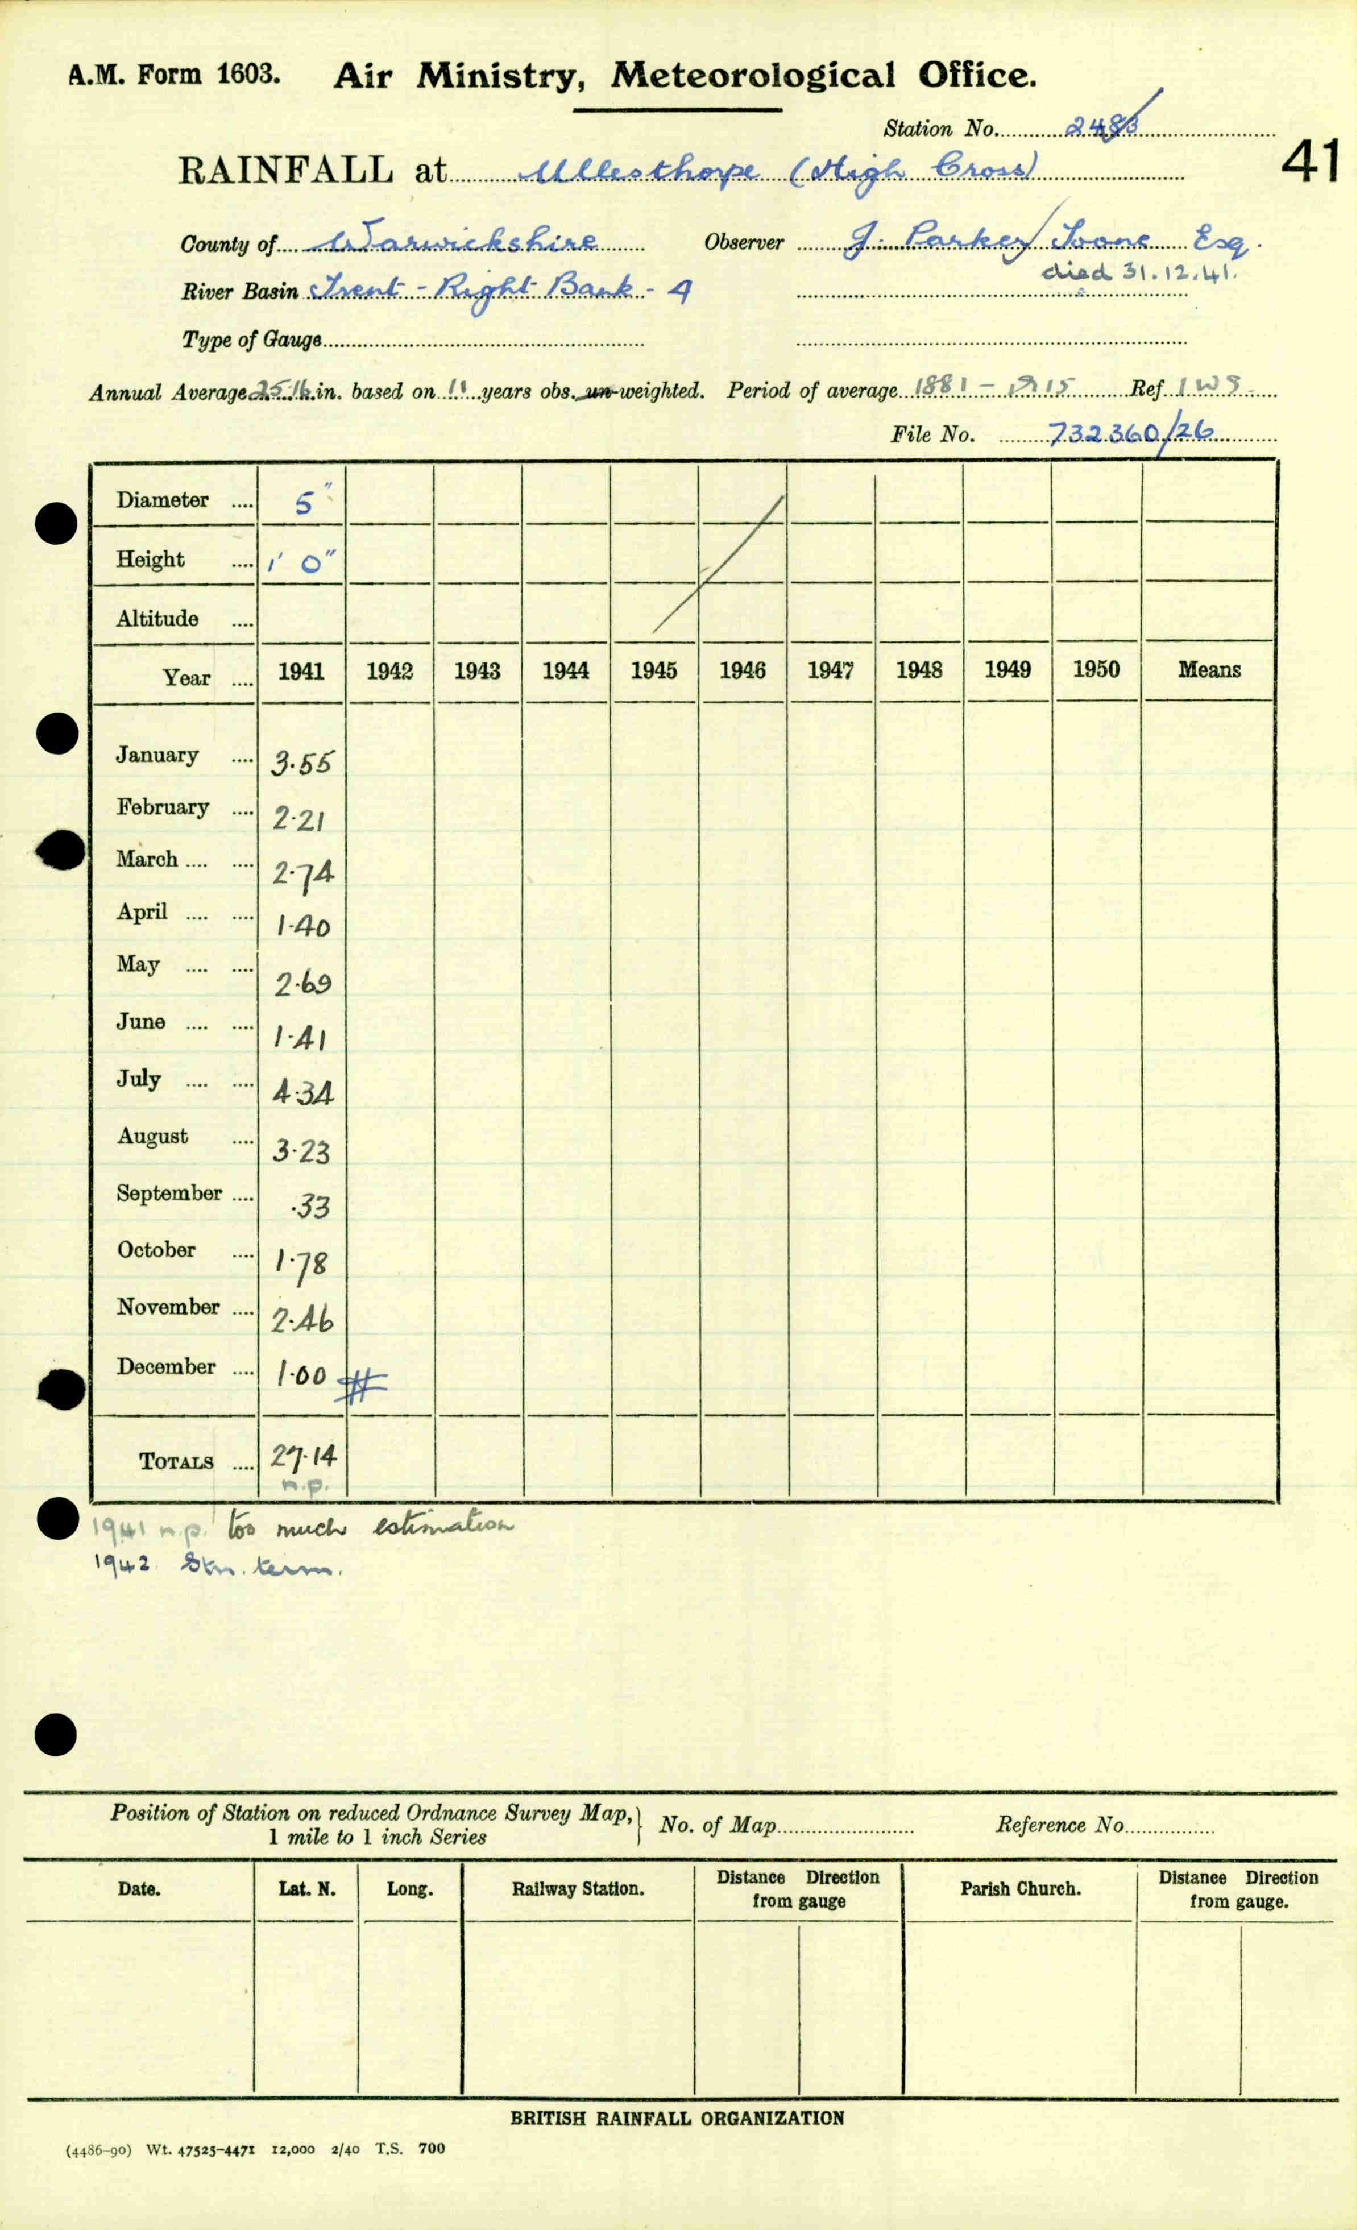 A.M. Form 1603. Air Ministry, Meteorological Office.
Station No. 2483
41
RAINFALL at Ullesthorpe (High Cross)
County of Warwickshire Observer J. Parkey Toone Esq.
died 31.12.41.
River Basin Trent - Right Bank - 4
Type of Gauge
Annual Average 25.16 in. based on 11 years obs. un-weighted. Period of average 1881 - 1915 Ref.
File No. 732360/26
Diameter .... 5"
Height .... 1' 0"
Altitude ....
Year .... 1941 1942 1943 1944 1945 1946 1947 1948 1949 1950 Means
January .... 3.55
February .... 2.21
March .... .... 2.74
April .... .... 1.40
May .... .... 2.69
June .... .... 1.41
July .... .... 4.34
August .... 3.23
September .... .33
October .... 1.78
November .... 2.46
December .... 1.00 #
TOTALS .... 27.14
n.p.
1941 n.p. too much estimation
1942 Stn. term.
Position of Station on reduced Ordnance Survey Map, } No. of Map Reference No.
1 mile to 1 inch Series
Date. Lat. N. Long. Railway Station. Distance Direction from gauge Parish Church. Distance Direction from gauge.
BRITISH RAINFALL ORGANIZATION
(4486-90) Wt. 47525-4471 12,000 2/40 T.S. 700